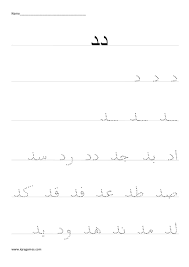 Name:
د د
د د د
ـد ـد ـد
اد بد جد دد رد سد
صد طد عد فد قد كد
لد مد ند هد ود يد